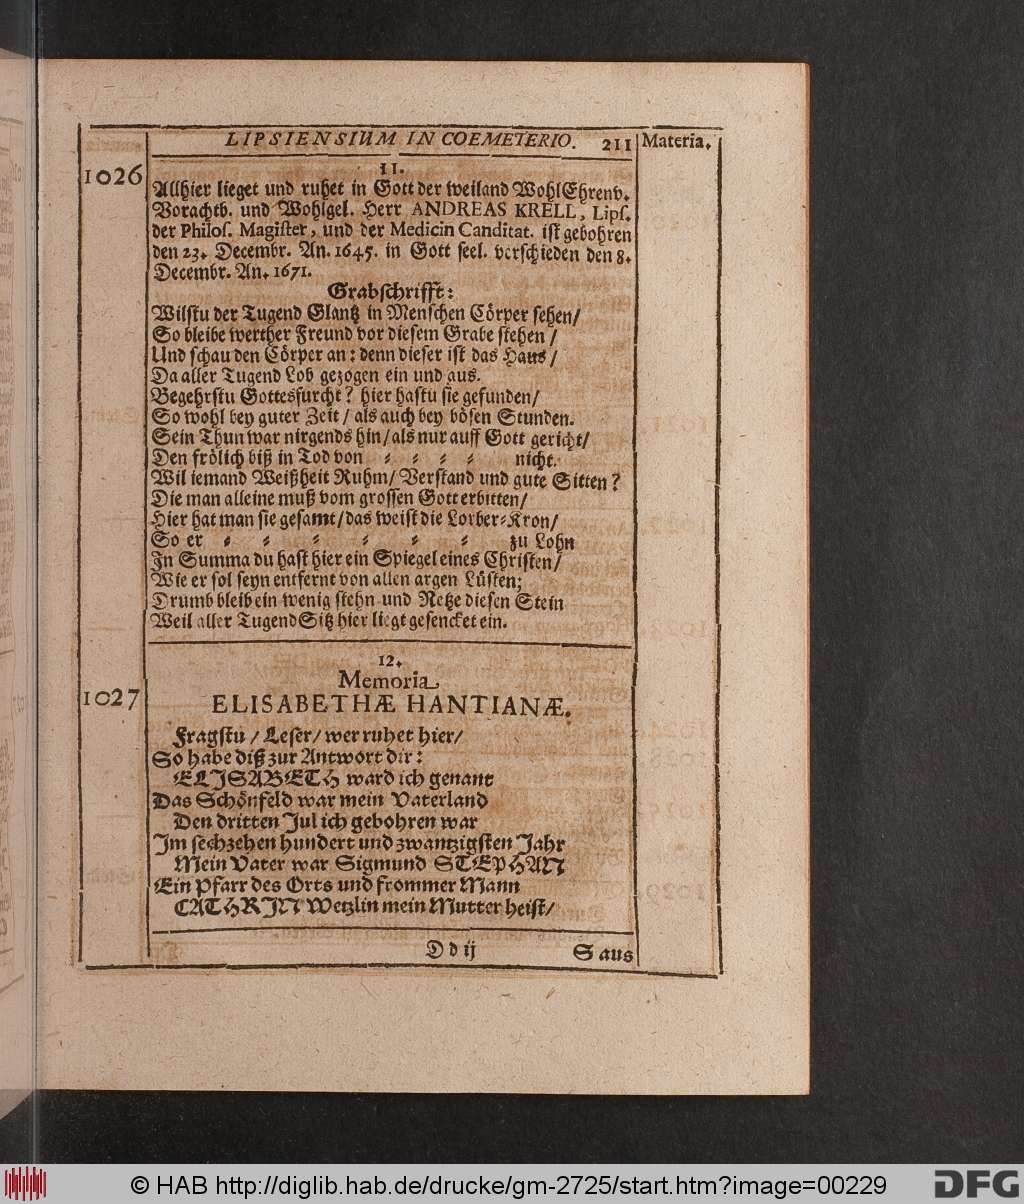 LIPSIENSIUM IN COEMETERIO. 211 Materia.
1026
11.
Allhier lieget und ruhet in Gott der weiland WohlEhrenv.
Vorachtb. und Wohlgel. Herr ANDREAS KRELL, Lipſ.
der Philoſ. Magiſter, und der Medicin Canditat. iſt gebohren
den 23. Decembr. An. 1645. in Gott ſeel. verſchieden den 8.
Decembr. An. 1671.
Grabſchrifft:
Wilſtu der Tugend Glantz in Menſchen Cörper ſehen/
So bleibe werther Freund vor dieſem Grabe ſtehen/
Und ſchau den Cörper an: denn dieſer iſt das Haus/
Da aller Tugend Lob gezogen ein und aus.
Begehrſtu Gottesfurcht? hier haſtu ſie gefunden/
So wohl bey guter Zeit/ als auch bey böſen Stunden.
Sein Thun war nirgends hin/ als nur auff Gott gericht/
Den frölich biß in Tod von ⸗ ⸗ ⸗ ⸗ nicht.
Wil iemand Weißheit Ruhm/ Verſtand und gute Sitten?
Die man alleine muß vom groſſen Gott erbitten/
Hier hat man ſie geſamt/ das weiſt die Lorber⸗Kron/
So er ⸗ ⸗ ⸗ ⸗ ⸗ ⸗ zu Lohn
In Summa du haſt hier ein Spiegel eines Chriſten/
Wie er ſol ſeyn entfernt von allen argen Lüſten;
Drumb bleib ein wenig ſtehn und Netze dieſen Stein
Weil aller Tugend Sitz hier liegt geſencket ein.
12.
1027
Memoria
ELISABETHÆ HANTIANÆ.
Fragſtu/ Leſer/ wer ruhet hier/
So habe diß zur Antwort dir:
ELISABETH ward ich genant
Das Schönfeld war mein Vaterland
Den dritten Jul ich gebohren war
Im ſechzehen hundert und zwantzigſten Jahr
Mein Vater war Sigmund STEPHAN
Ein Pfarr des Orts und frommer Mann
CATHRIN Wetzlin mein Mutter heiſt/
D d ij S aus
© HAB http://diglib.hab.de/drucke/gm-2725/start.htm?image=00229
DFG